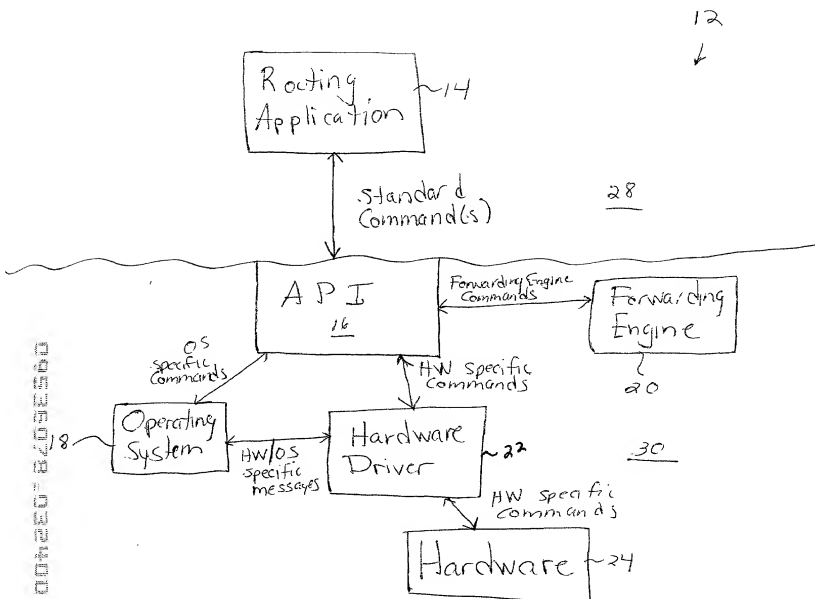 12
Routing
Application
14
Standard
Command(s)
28
API
16
Forwarding Engine
Commands
Forwarding
Engine
20
OS
specific
Commands
HW specific
Commands
18
Operating
System
HW/OS
specific
messages
Hardware
Driver
22
30
HW specific
Commands
Hardware
24